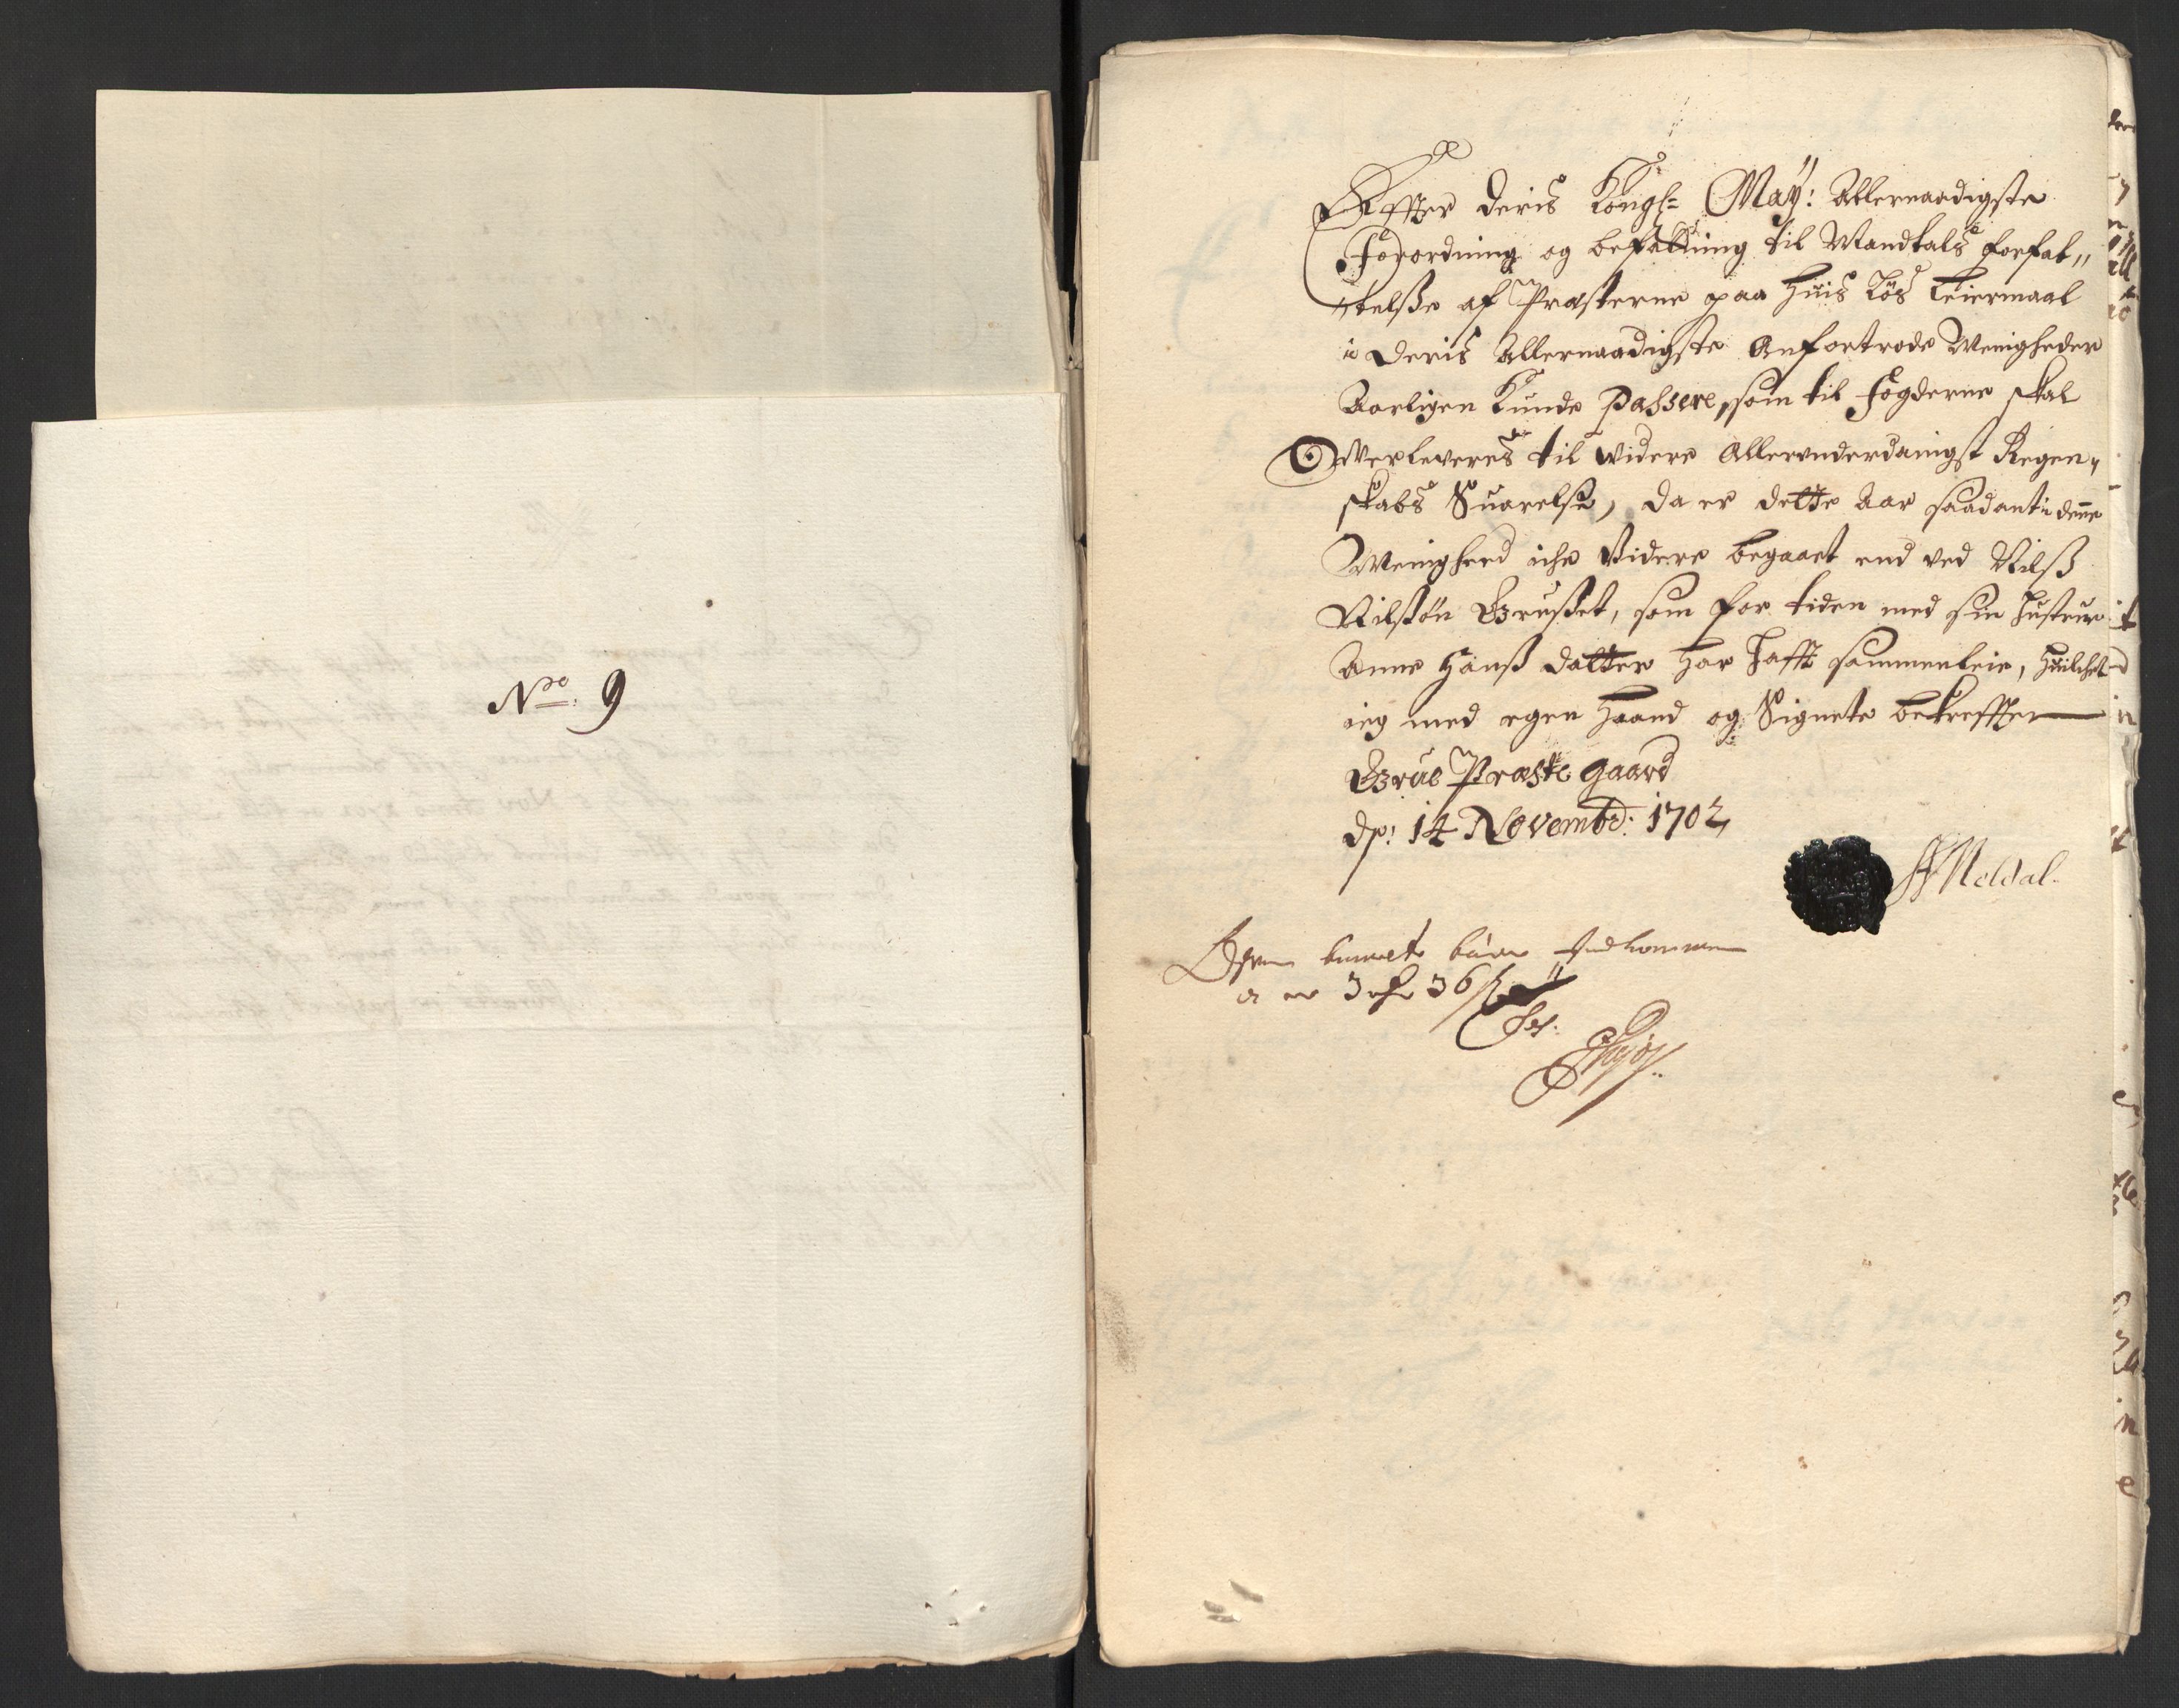 No. 9
Effter deris Kongl: May: Allernaadigste
Forordning og befalning til Mandtals forfat„
„telsse af Præsterne paa huis Løs Leiermaal
i deris Allernaadigste Anfortrode Menigheder
Aarligen Kunde Passere, som til Fogderne skal
Overleveres til widere Allerunderdanigst Regen„
skabs Suarelse, da er dette Aar saadant i denne
Menighed iche Widere begaaet end ved Nilß
Nilßøn Brusset, som for tiden med sin hustrue
Anne Hanß datter har hafft sammenleie, huilchet
ieg med egen Haand og Signete bekreffter
Grue Præste gaard
dn: 14 Novembr: 1702
Meldal
indkommen
er 3 rdr 36 s